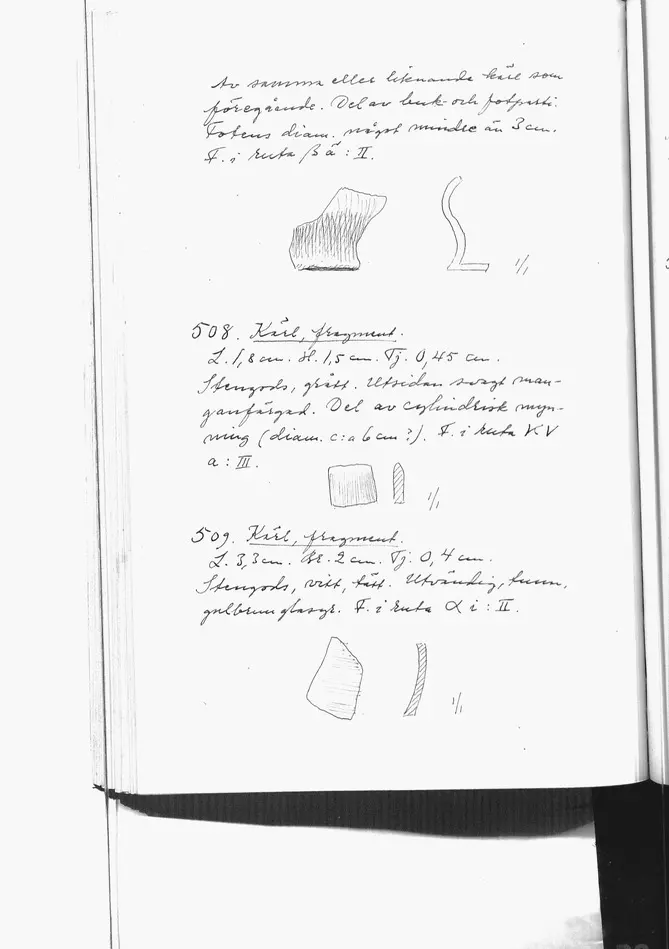 Av samma eller liknande kärl som
föregående. Del av buk- och fotparti.
Fotens diam. något mindre än 3 cm.
F. i ruta β ä : II.
1/1
508. Kärl, fragment.
L. 1,8 cm. H. 1,5 cm. Tj. 0,45 cm.
Stengods, grått. Utsidan svagt man-
ganfärgad. Del av cylindrisk myn-
ning (diam. c:a 6 cm?). F. i ruta KV
a : III.
1/1
509. Kärl, fragment.
L. 3,3 cm. Br. 2 cm. Tj. 0,4 cm.
Stengods, vitt, tätt. Utvändig, tunn,
gulbrun glasyr. F. i ruta α i : II.
1/1